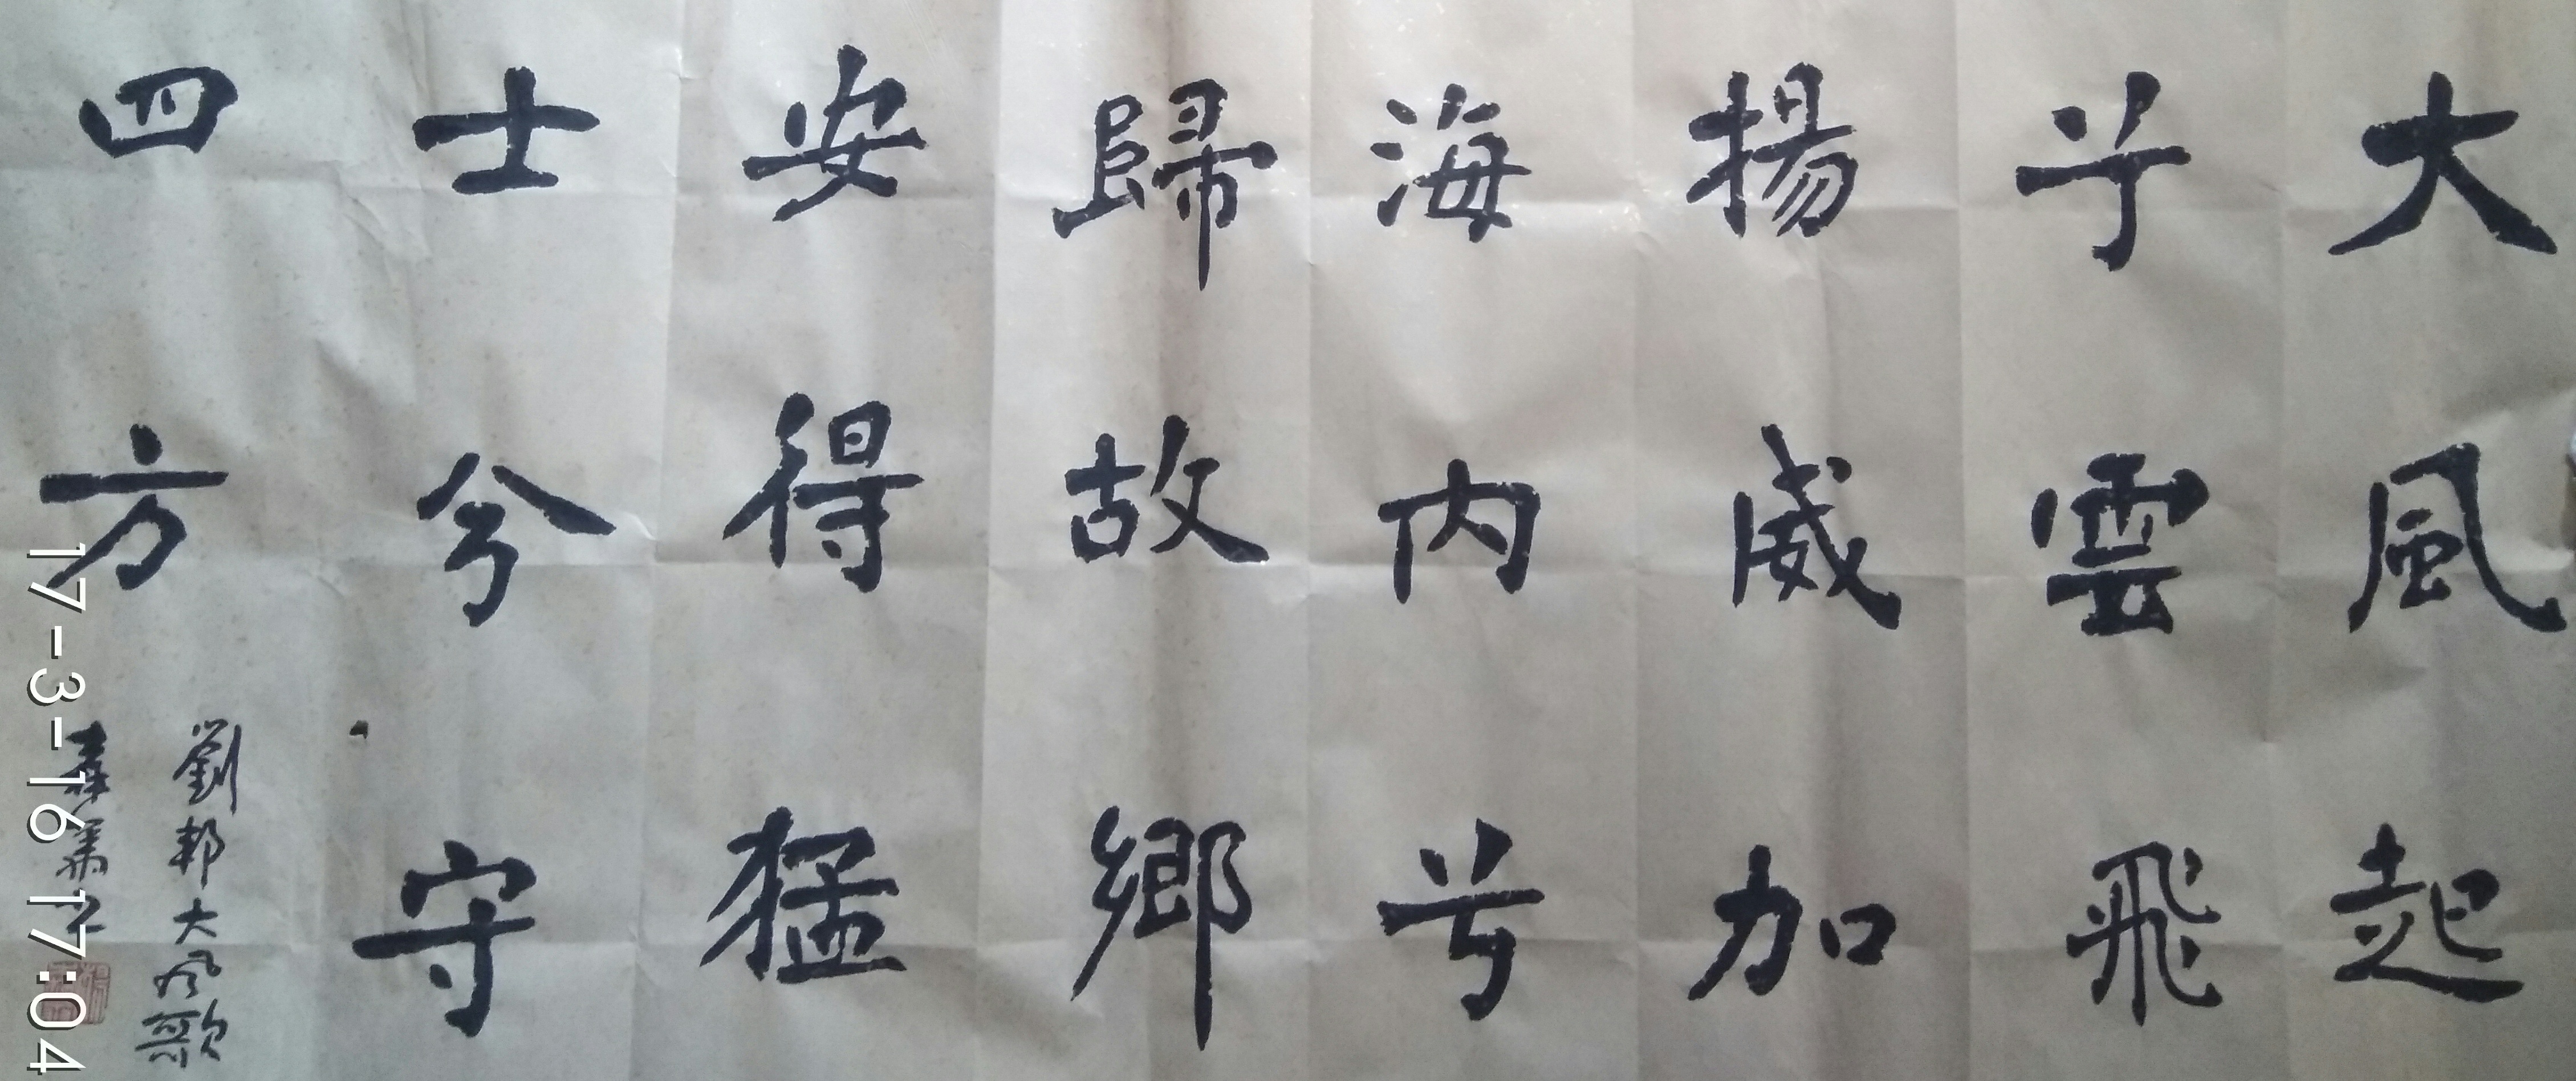 大風起
兮雲飛
揚威加
海内兮
歸故鄉
安得猛
士兮守
四方
劉邦大风歌
17-3-16 17:04